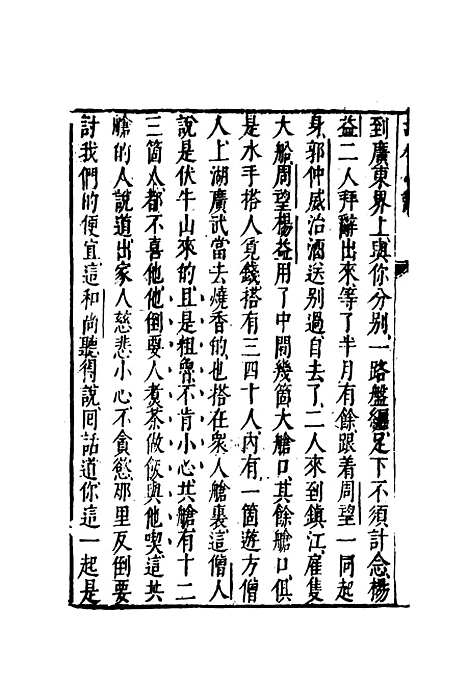 到廣東界上與你分別一路盤纏足下不須計念楊
益二人拜辭出來等了半月有餘跟着周望一同起
身郭仲威治酒送別過自去了二人來到鎮江雇隻
大船周望楊益用了中間幾箇大艙口其餘艙口俱
是水手搭人覓錢搭有三四十人內有一箇遊方僧
人上湖廣武當去燒香的也搭在衆人艙裏這僧人
說是伏牛山來的且是粗魯不肯小心共艙有十二
三箇人都不喜他他倒要人煮茶做飯與他喫這共
艙的人說道出家人慈悲小心不貪慾那里反倒要
討我們的便宜這和尚聽得說回話道你這一起是